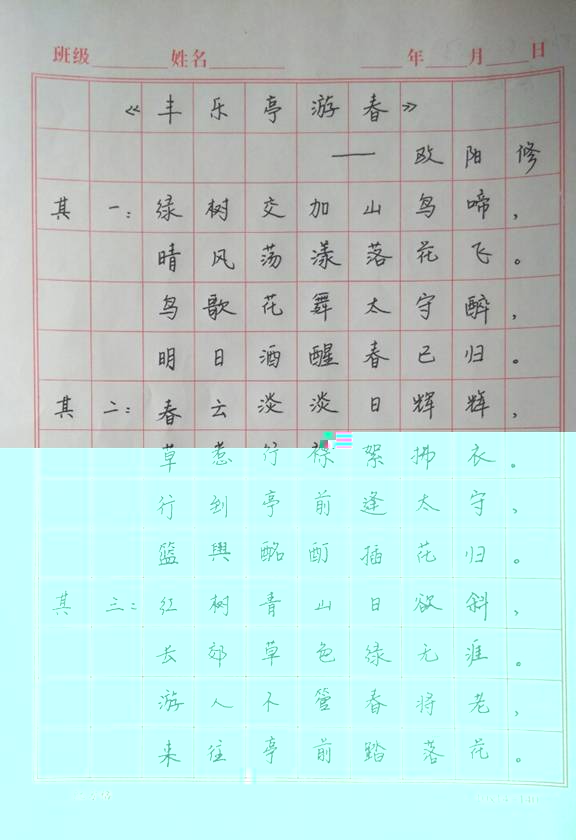 班级 姓名 年 月 日
《丰乐亭游春》
—— 欧阳修
其一:绿树交加山鸟啼,
晴风荡漾落花飞。
鸟歌花舞太守醉,
明日酒醒春已归。
其二:春云淡淡日辉辉,
草惹行襟絮拂衣。
行到亭前逢太守,
篮舆酩酊插花归。
其三:红树青山日欲斜,
长郊草色绿无涯。
游人不管春将老,
来往亭前踏落花。